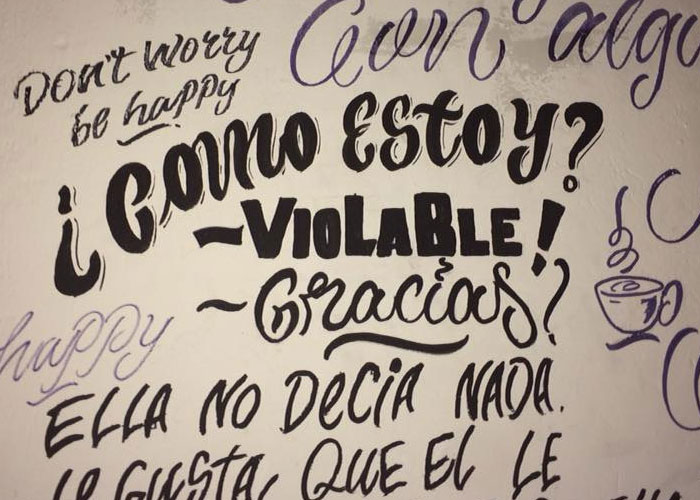 Con algo
Don't worry
be happy
¿Como Estoy?
~VIOLABLE!
~Gracias?
happy
ELLA NO DECIA NADA.
LE GUSTA, QUE EL LE